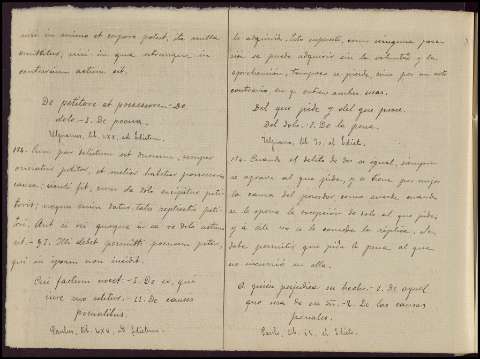 nisi in animo et corpore potest, ita nulla
amittitur, nisi in qua utrumque in
contrarium actum est.
De petitore et possessore.-De
dolo.-S. De poena.
Ulpianus, lib. LXX, ad Edictum.
154. Cum par delictum est duorum, semper
oneratur petitor, et melior habetur possessoris
causa, sicuti fit, cum de dolo excipitur peti-
toris; neque enim datur talis replicatio peti-
tori: Aut si rei quoque in ea re dolo actum
sit.- §1. Illi debet permitti poenam petere,
qui in ipsam non incidit.
Cui factum nocet.-S. De eo, qui
iure suo utitur.-2. De causis
poenalibus.
Paulus, lib. LXV, ad Edictum.
la adquirida. Esto supuesto, como ninguna pose-
sión se puede adquirir sin la voluntad y la
aprehensión, tampoco se pierde, sino por un acto
contrario en que estén ambas cosas.
Del que pide y del que posee.
Del dolo.-S. De la pena.
Ulpiano, lib. 70, al Edicto.
154. Cuando el delito de dos es igual, siempre
se agrava al que pide, y se tiene por mejor
la causa del poseedor como sucede, cuando
se le opone la excepción de dolo al que pide,
y á éste no se le concede la réplica,
debe permitir que pida la pena al que
no incurrió en ella.
A quien perjudica su hecho.-S. De aquel
que usa de su
De las causas
penales.
Paulo, lib. 65, al Edicto.